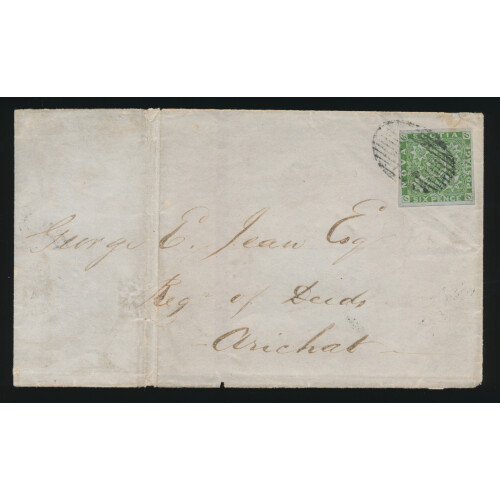 NOVA SCOTIA
POSTAGE
SIX PENCE
George E. Jean Esq
Reg of Deids
Arichat